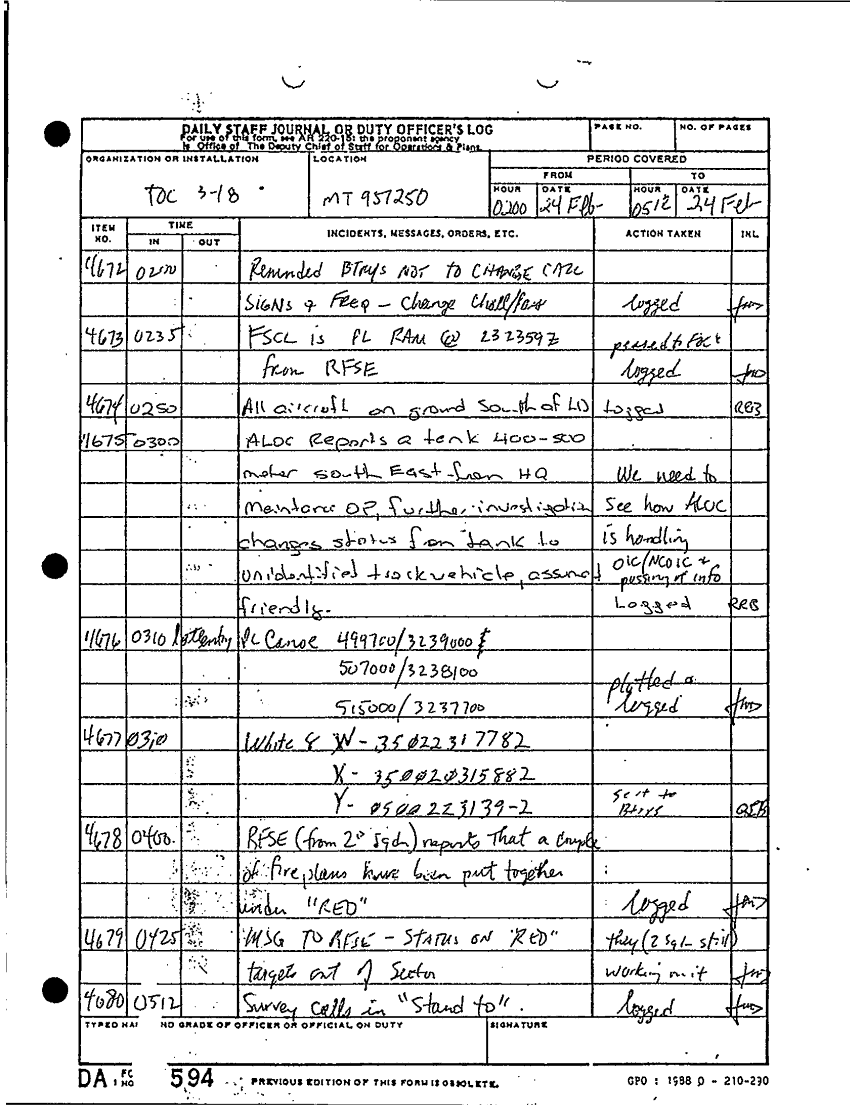 DAILY STAFF JOURNAL OR DUTY OFFICER'S LOG
For use of this form, see AR 220-15; the proponent agency
is Office of The Deputy Chief of Staff for Operations & Plans.
PAGE NO.
NO. OF PAGES
ORGANIZATION OR INSTALLATION
LOCATION
PERIOD COVERED
FROM
TO
TOC 3-18
MT 957250
HOUR
DATE
HOUR
DATE
0200
24 Feb
0512
24 Feb
ITEM NO.
TIME
IN
OUT
INCIDENTS, MESSAGES, ORDERS, ETC.
ACTION TAKEN
INL
4672 Reminded BTRYS NOT TO CHANGE CALL
SIGNS & Freq - Change Chall/Pass logged
4673 0235 FSCL is PL RAM @ 232359Z passed to FDC &
from RFSE logged
4674 0250 All aircraft on ground South of LD Logged RRB
4675 0300 ALOC Reports a tank 400-500
meter south East from HQ We need to
Maintance OP, further investigation See how ALOC
changes status from tank to is handling
unidentified track vehicle, assumed OIC/NCOIC & passing of info
friendly. Logged RRB
4676 0310 late entry PL Canoe 499700/3239000 &
507000/3238100
515000/3237700 plotted & logged
4677 0310 White 8 W - 35022317782
X - 350020315882
Y - 0500223139-2 sent to Btrys
4678 0400 RFSE (from 2d Sqdn) reports That a couple
of fire plans have been put together
under "RED" logged
4679 0425 MSG TO RFSE - STATUS ON "RED" they (2 Sqdn still)
targets out of Sector working on it
4680 0512 Survey calls in "Stand to". logged
TYPED NAME AND GRADE OF OFFICER OR OFFICIAL ON DUTY
SIGNATURE
DA 594
PREVIOUS EDITION OF THIS FORM IS OBSOLETE.
GPO : 1988 O - 210-290